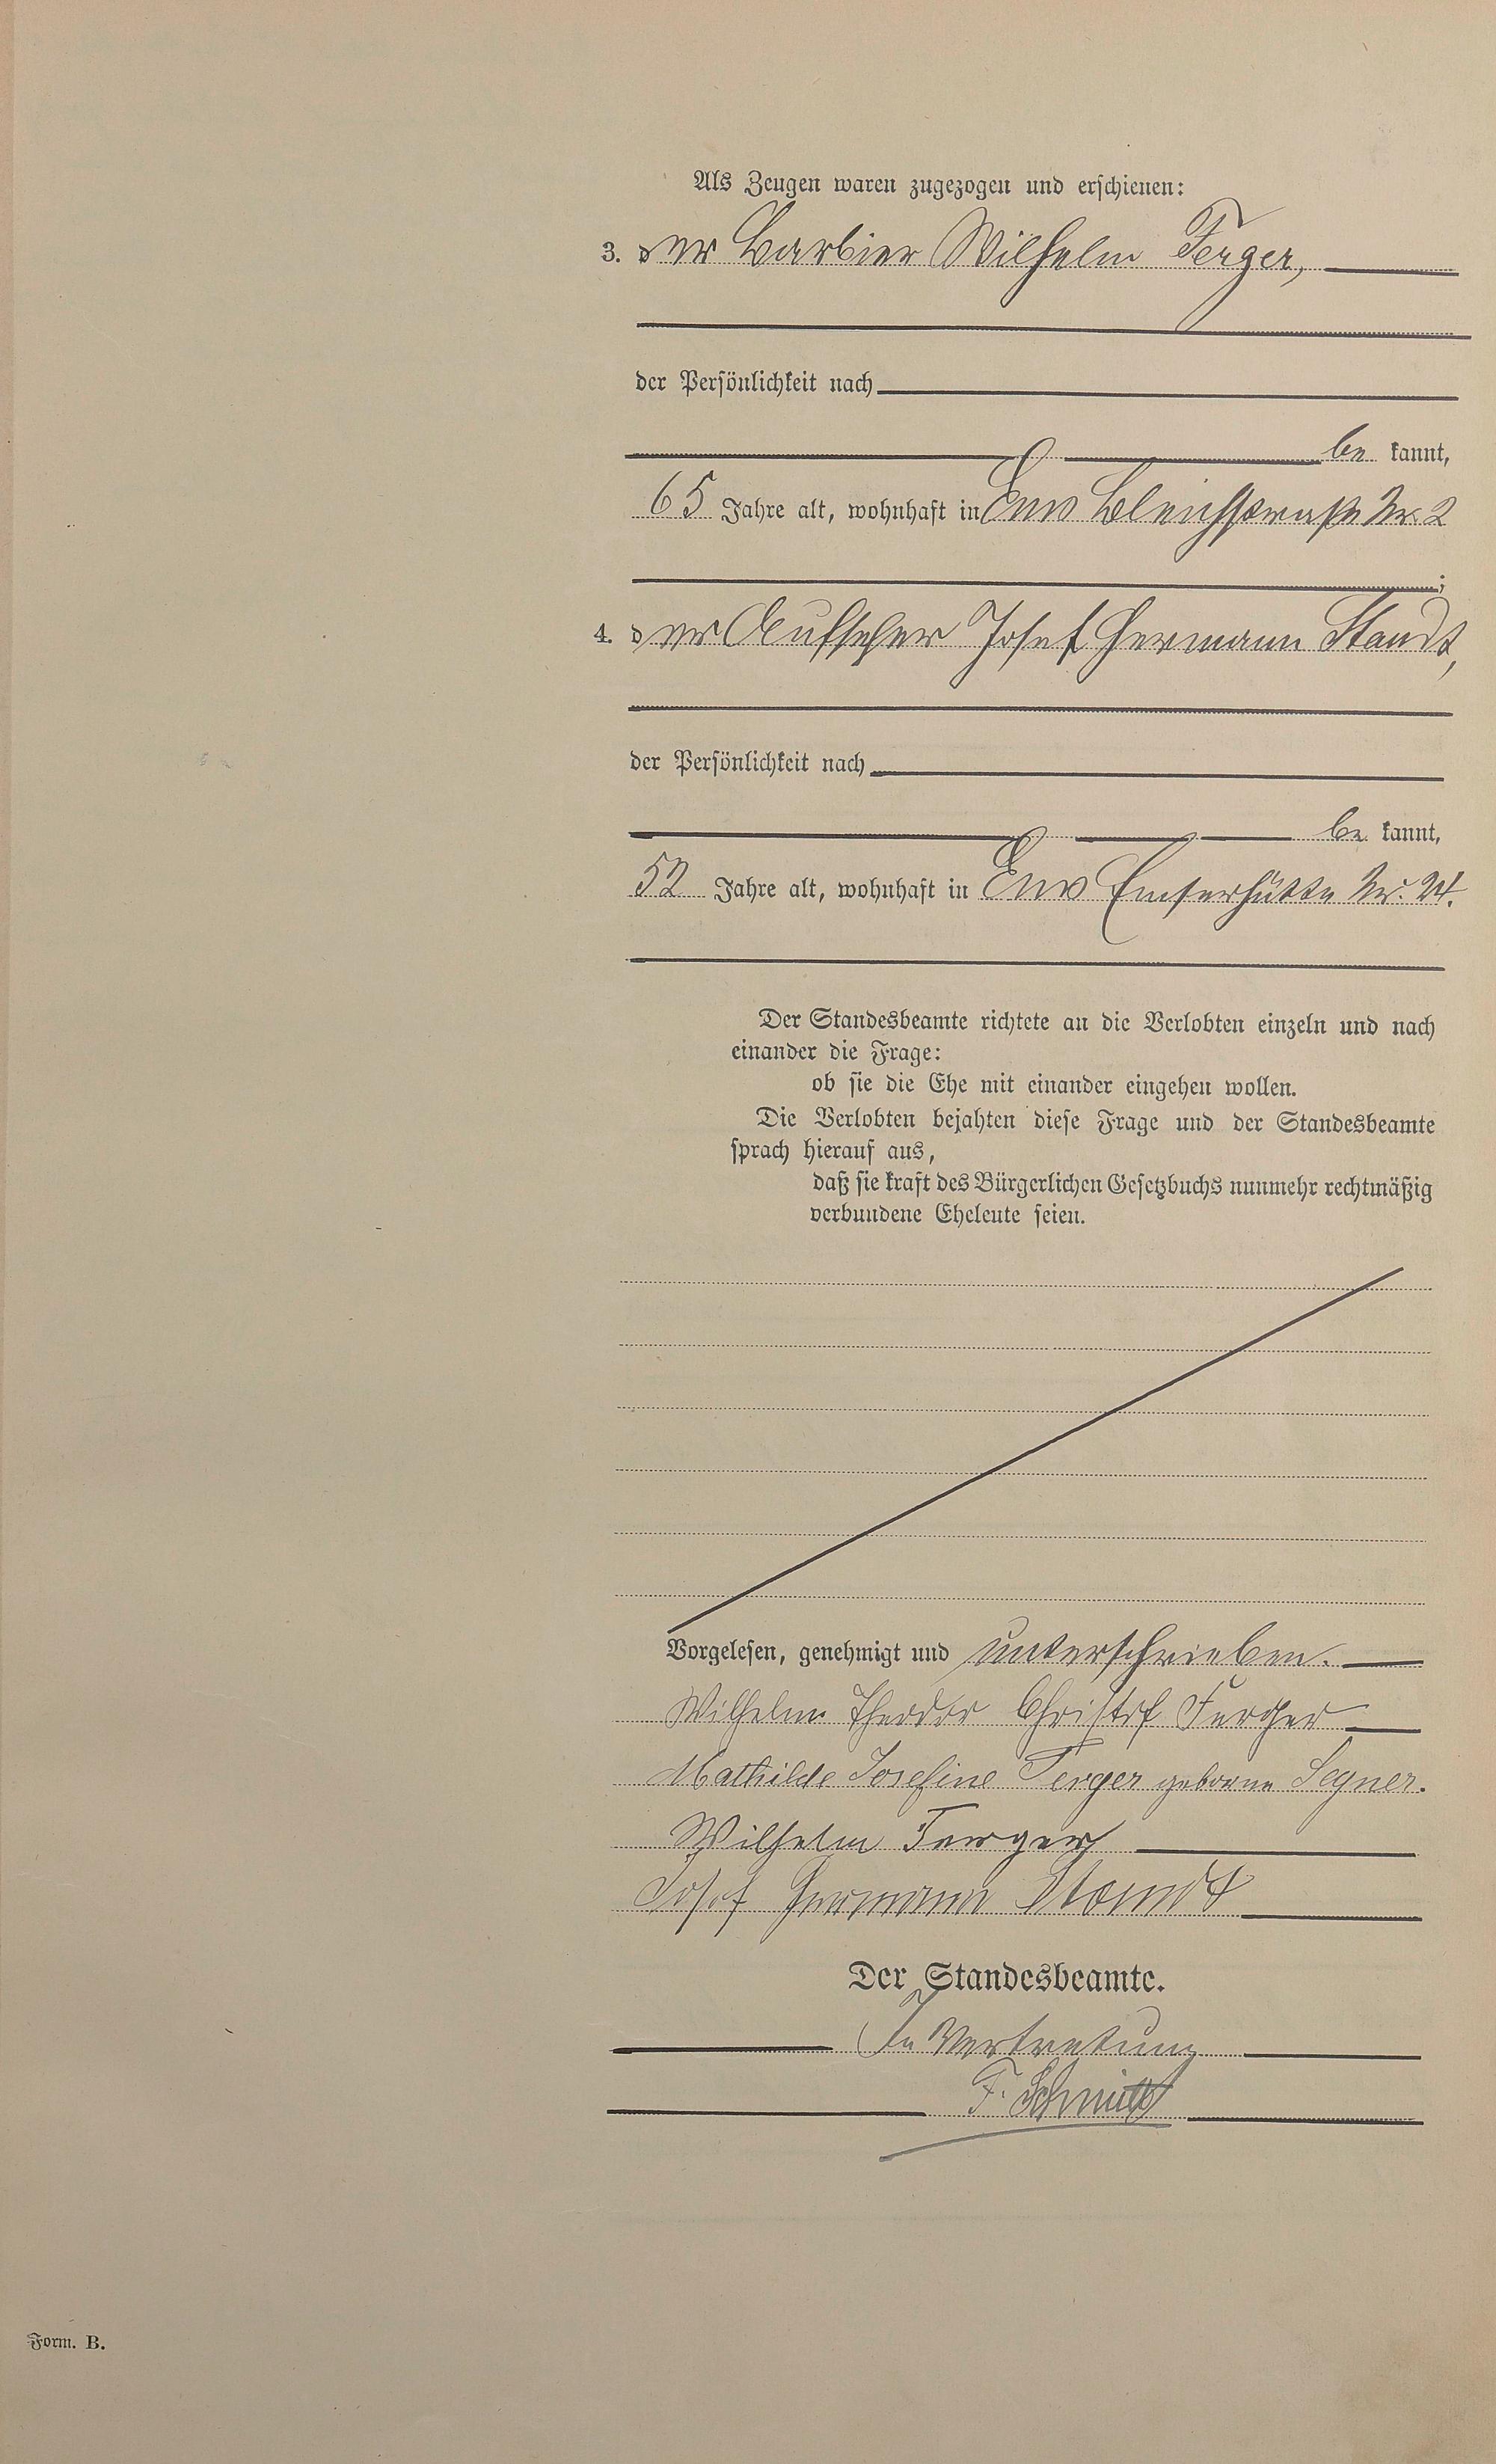 Als Zeugen waren zugezogen und erschienen:
3. der Barbier Wilhelm Ferger,
der Persönlichkeit nach
be kannt,
65 Jahre alt, wohnhaft in Ems Bleichstraße Nr. 2
;
4. der Aufseher Josef Hermann Staudt,
der Persönlichkeit nach
be kannt,
52 Jahre alt, wohnhaft in Ems Emserhütte Nr. 24.
Der Standesbeamte richtete an die Verlobten einzeln und nach
einander die Frage:
ob sie die Ehe mit einander eingehen wollen.
Die Verlobten bejahten diese Frage und der Standesbeamte
sprach hierauf aus,
daß sie kraft des Bürgerlichen Gesetzbuchs nunmehr rechtmäßig
verbundene Eheleute seien.
Vorgelesen, genehmigt und unterschrieben.
Wilhelm Theodor Christof Ferger
Mathilde Josefine Ferger geborne Segner.
Wilhelm Ferger
Josef Hermann Staudt
Der Standesbeamte.
In Vertretung
F. Schmitt
Form. B.